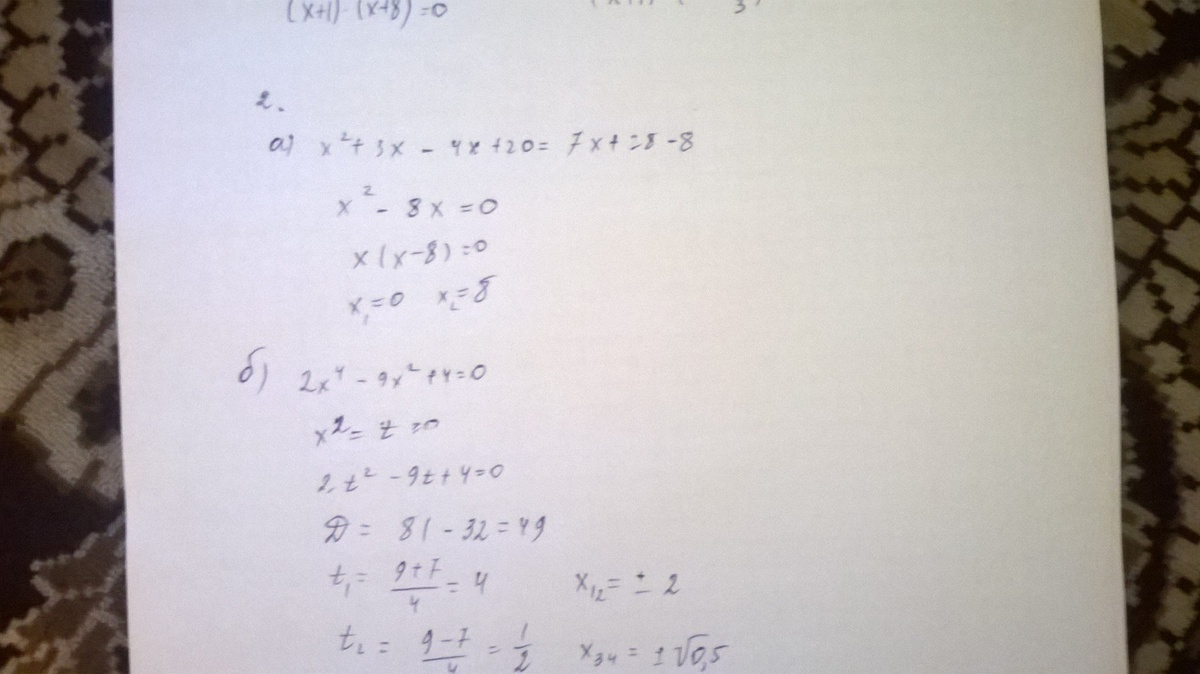 (x+1)·(x+8)=0
2.
а) x²+3x - 4x+20= 7x+28-8
x² - 8x=0
x(x-8)=0
x₁=0 x₂=8
б) 2x⁴ - 9x²+4=0
x²= t ≥0
2t² -9t+4=0
D= 81-32=49
t₁= (9+7)/4 = 4 x₁₂= ± 2
t₂ = (9-7)/4 = 1/2 x₃₄ = ±√0,5